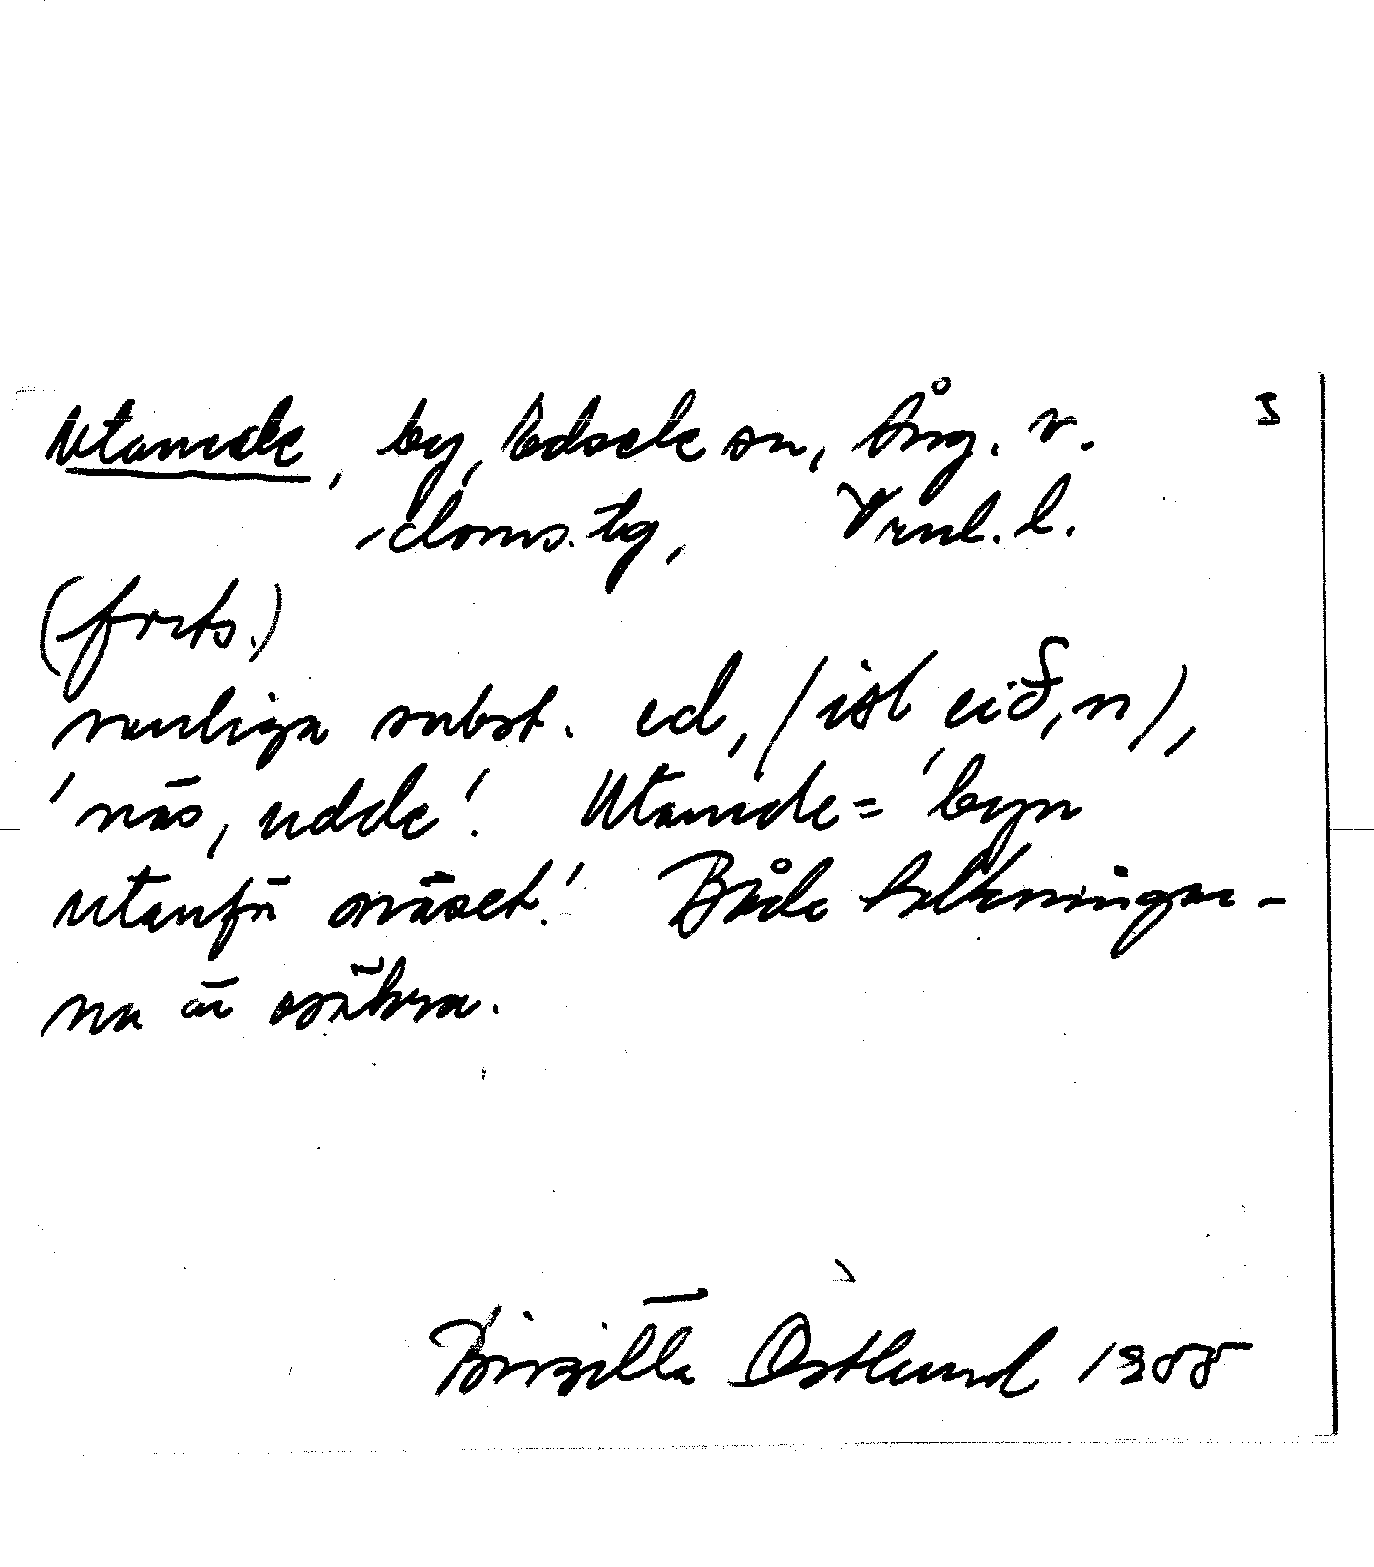 Utanede, by, Edsele sn, Ång. v. 3
doms.tg, Vrnl. l.
(forts.)
vanliga subst. ed, (isl eið, n),
'näs, udde'. Utanede = 'byn
utanför näset'. Båda tolkningar-
na är osäkra.
Birgitta Östlund 1988